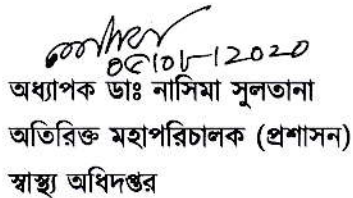 ০৫/০৮/২০২০
অধ্যাপক ডাঃ নাসিমা সুলতানা
অতিরিক্ত মহাপরিচালক (প্রশাসন)
স্বাস্থ্য অধিদপ্তর